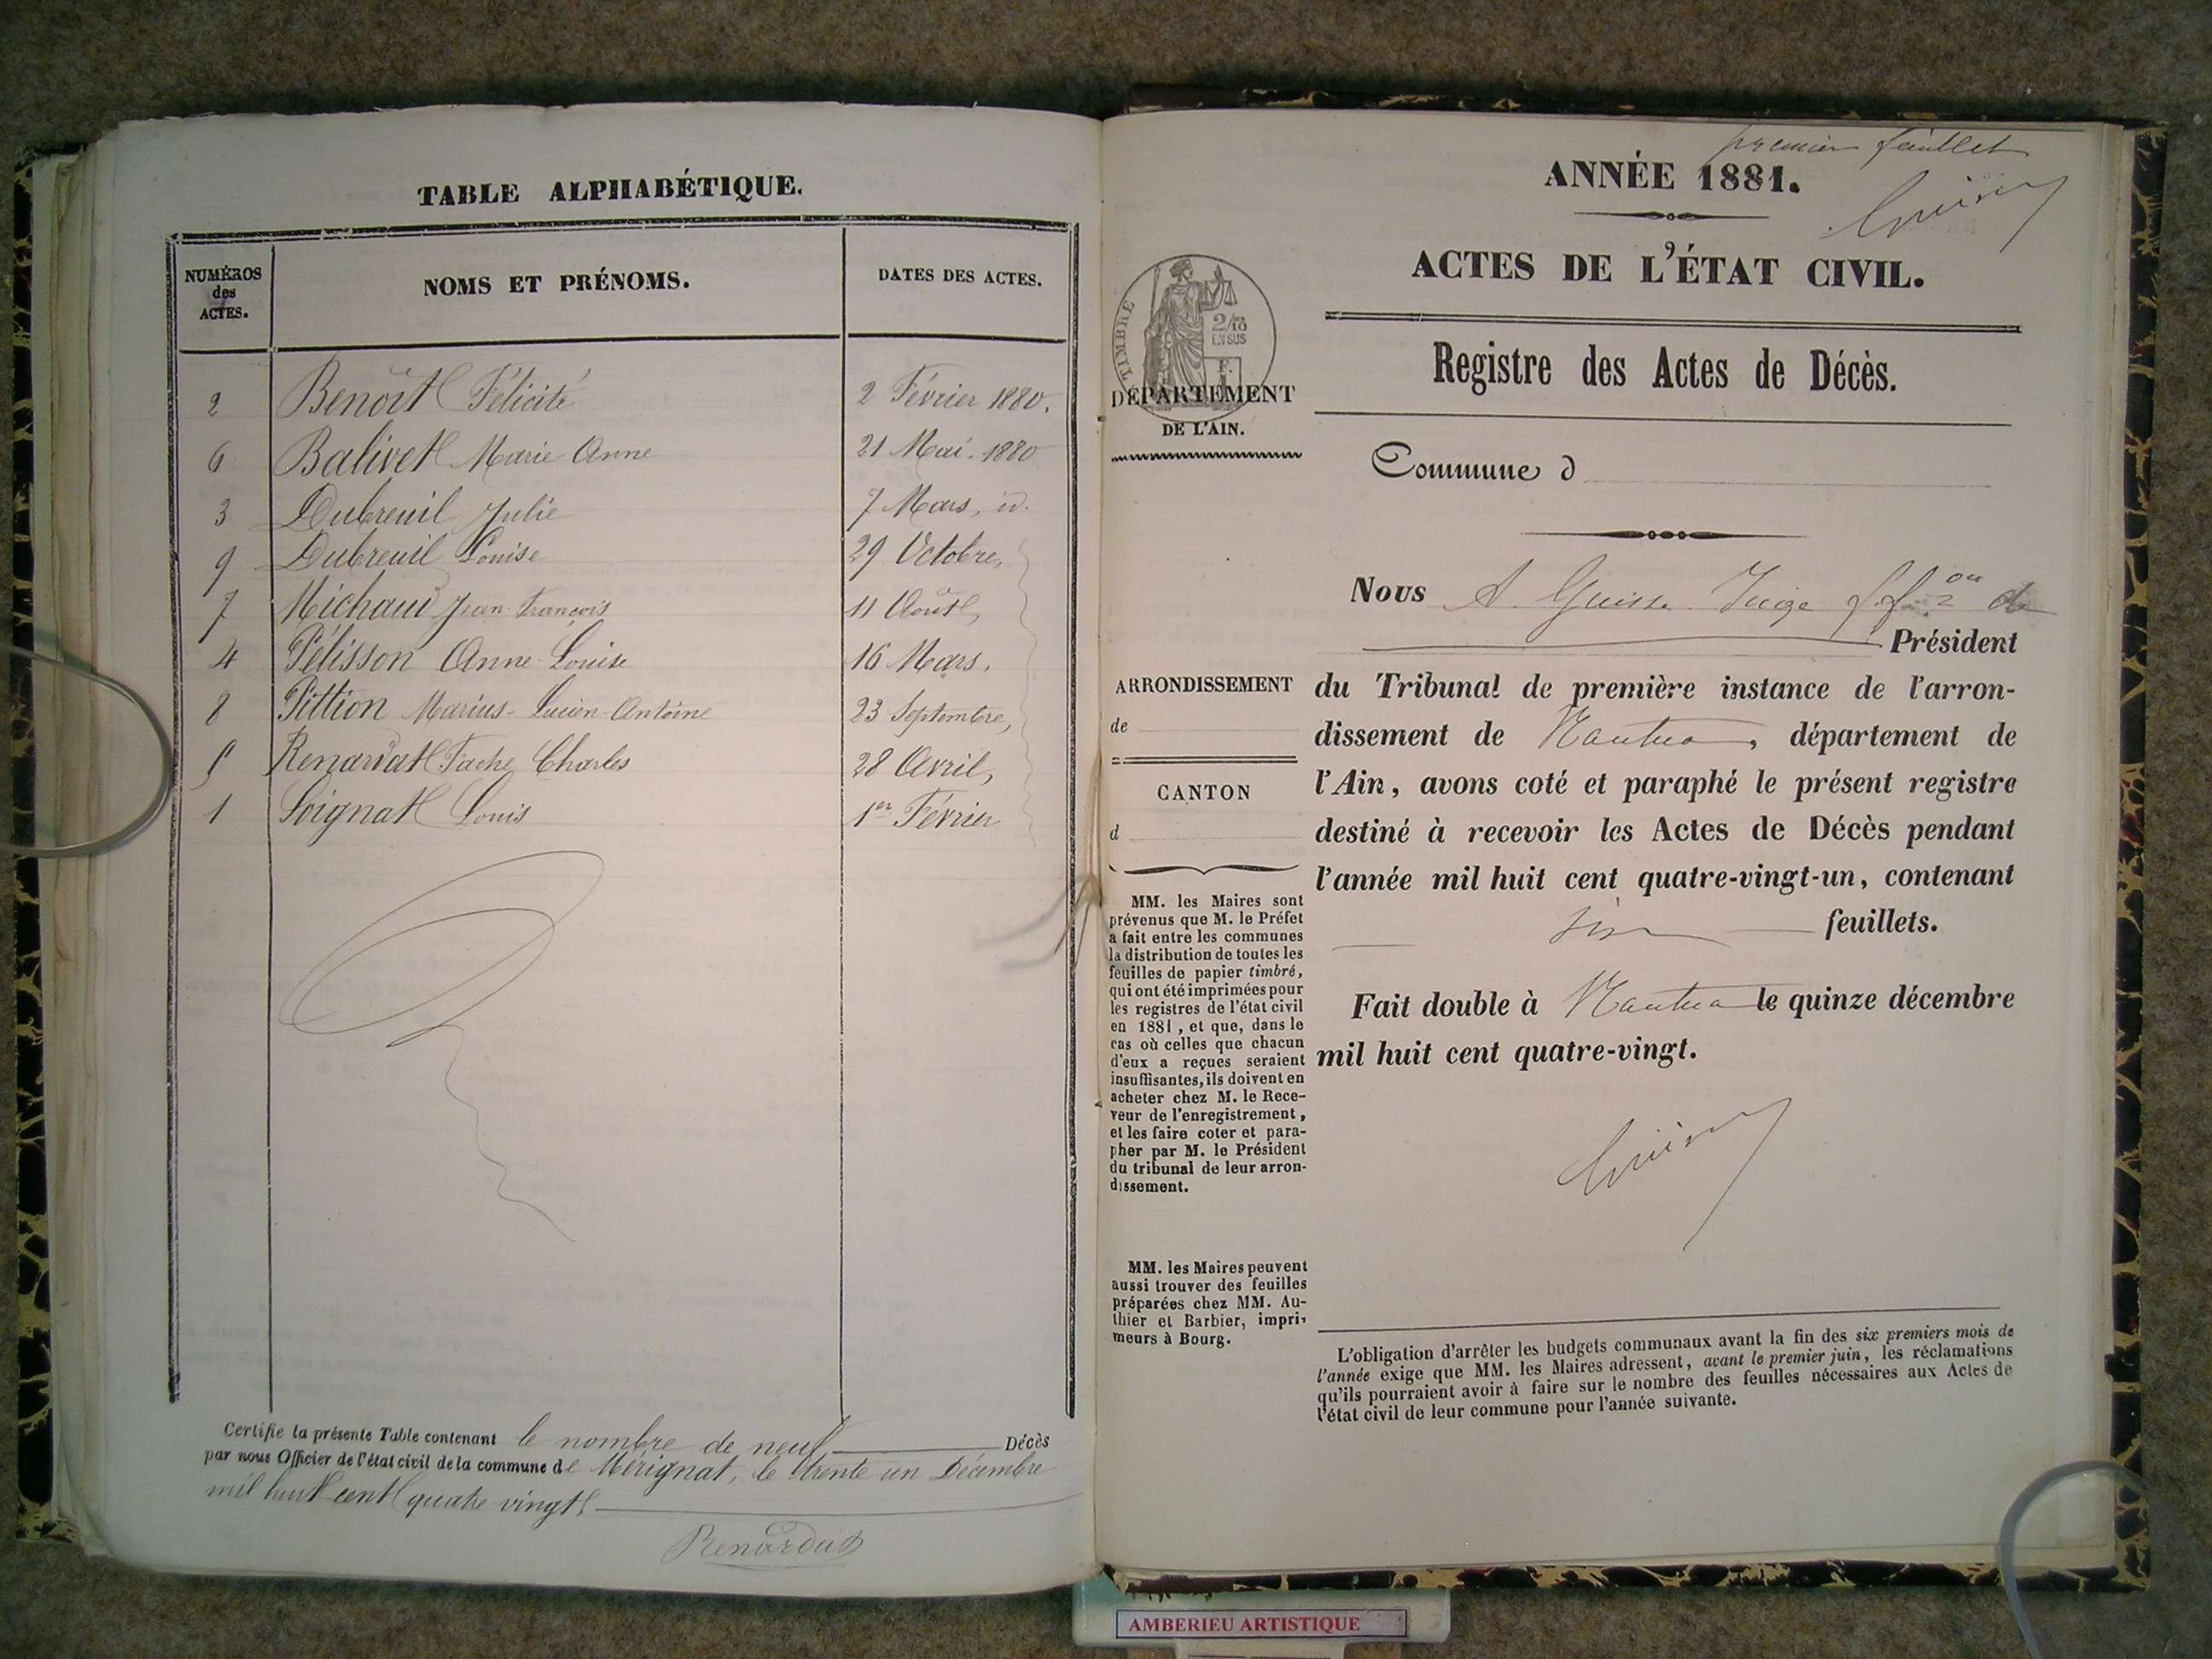 TABLE ALPHABÉTIQUE.
NUMÉROS des ACTES.
NOMS ET PRÉNOMS.
DATES DES ACTES.
2 Benoît Félicité 2 Février 1880.
6 Balivet Marie-Anne 21 Mai. 1880
3 Dubreuil Julie 7 Mars, id.
9 Dubreuil Louise 29 Octobre,
7 Michaud Jean-François 11 Août,
4 Pélisson Anne-Louise 16 Mars.
8 Pittion Marius-Lucien-Antoine 23 Septembre,
5 Charles 28 Avril,
1 Soignat Louis 1er Février
Certifie la présente Table contenant le nombre de neuf Décès
par nous Officier de l'état civil de la commune de Mérignat, le trente un Décembre
mil huit cent quatre vingt
premier feuillet
ANNÉE 1881.
ACTES DE L'ÉTAT CIVIL.
Registre des Actes de Décès.
TIMBRE
2/10
EN SUS
DÉPARTEMENT
DE L'AIN.
Commune d
Nous A. Juge de
Président
du Tribunal de première instance de l'arron-
dissement de Nantua, département de
l'Ain, avons coté et paraphé le présent registre
destiné à recevoir les Actes de Décès pendant
l'année mil huit cent quatre-vingt-un, contenant
six feuillets.
Fait double à Nantua le quinze décembre
mil huit cent quatre-vingt.
ARRONDISSEMENT
de
CANTON
d
MM. les Maires sont
prévenus que M. le Préfet
a fait entre les communes
la distribution de toutes les
feuilles de papier timbré,
qui ont été imprimées pour
les registres de l'état civil
en 1881, et que, dans le
cas où celles que chacun
d'eux a reçues seraient
insuffisantes, ils doivent en
acheter chez M. le Rece-
veur de l'enregistrement,
et les faire coter et para-
pher par M. le Président
du tribunal de leur arron-
dissement.
MM. les Maires peuvent
aussi trouver des feuilles
préparées chez MM. Au-
thier et Barbier, impri-
meurs à Bourg.
L'obligation d'arrêter les budgets communaux avant la fin des six premiers mois de
l'année exige que MM. les Maires adressent, avant le premier juin, les réclamations
qu'ils pourraient avoir à faire sur le nombre des feuilles nécessaires aux Actes de
l'état civil de leur commune pour l'année suivante.
AMBERIEU ARTISTIQUE